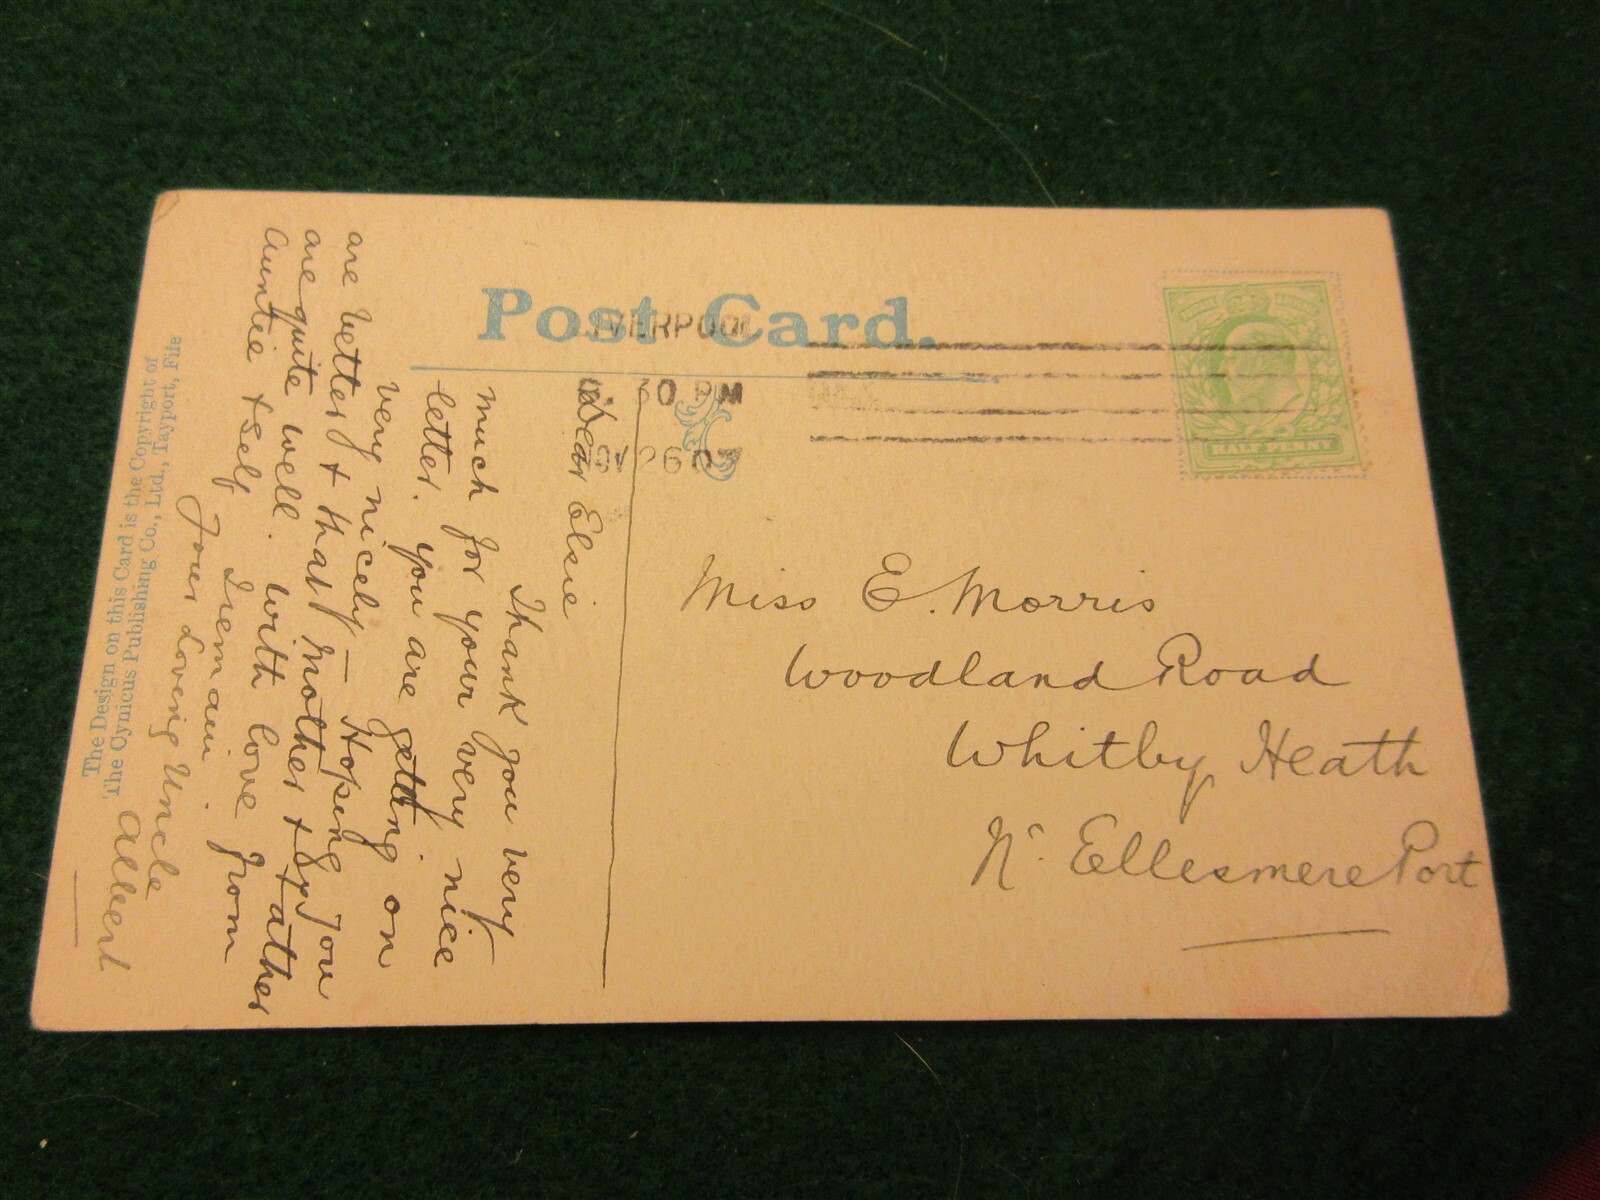 Post Card.
LIVERPOOL
30 PM
NOV 26 07
HALF PENNY
Miss E. Morris
Woodland Road
Whitby Heath
Nr. Ellesmere Port
Dear Elsie
Thank you very
much for your very nice
letter. You are getting on
very nicely — Hoping you
are better & that Mother & Father
are quite well. With love from
Auntie & self I remain.
Your Loving Uncle
Albert
The Design on this Card is the Copyright of
The Cynicus Publishing Co., Ltd., Tayport, Fife